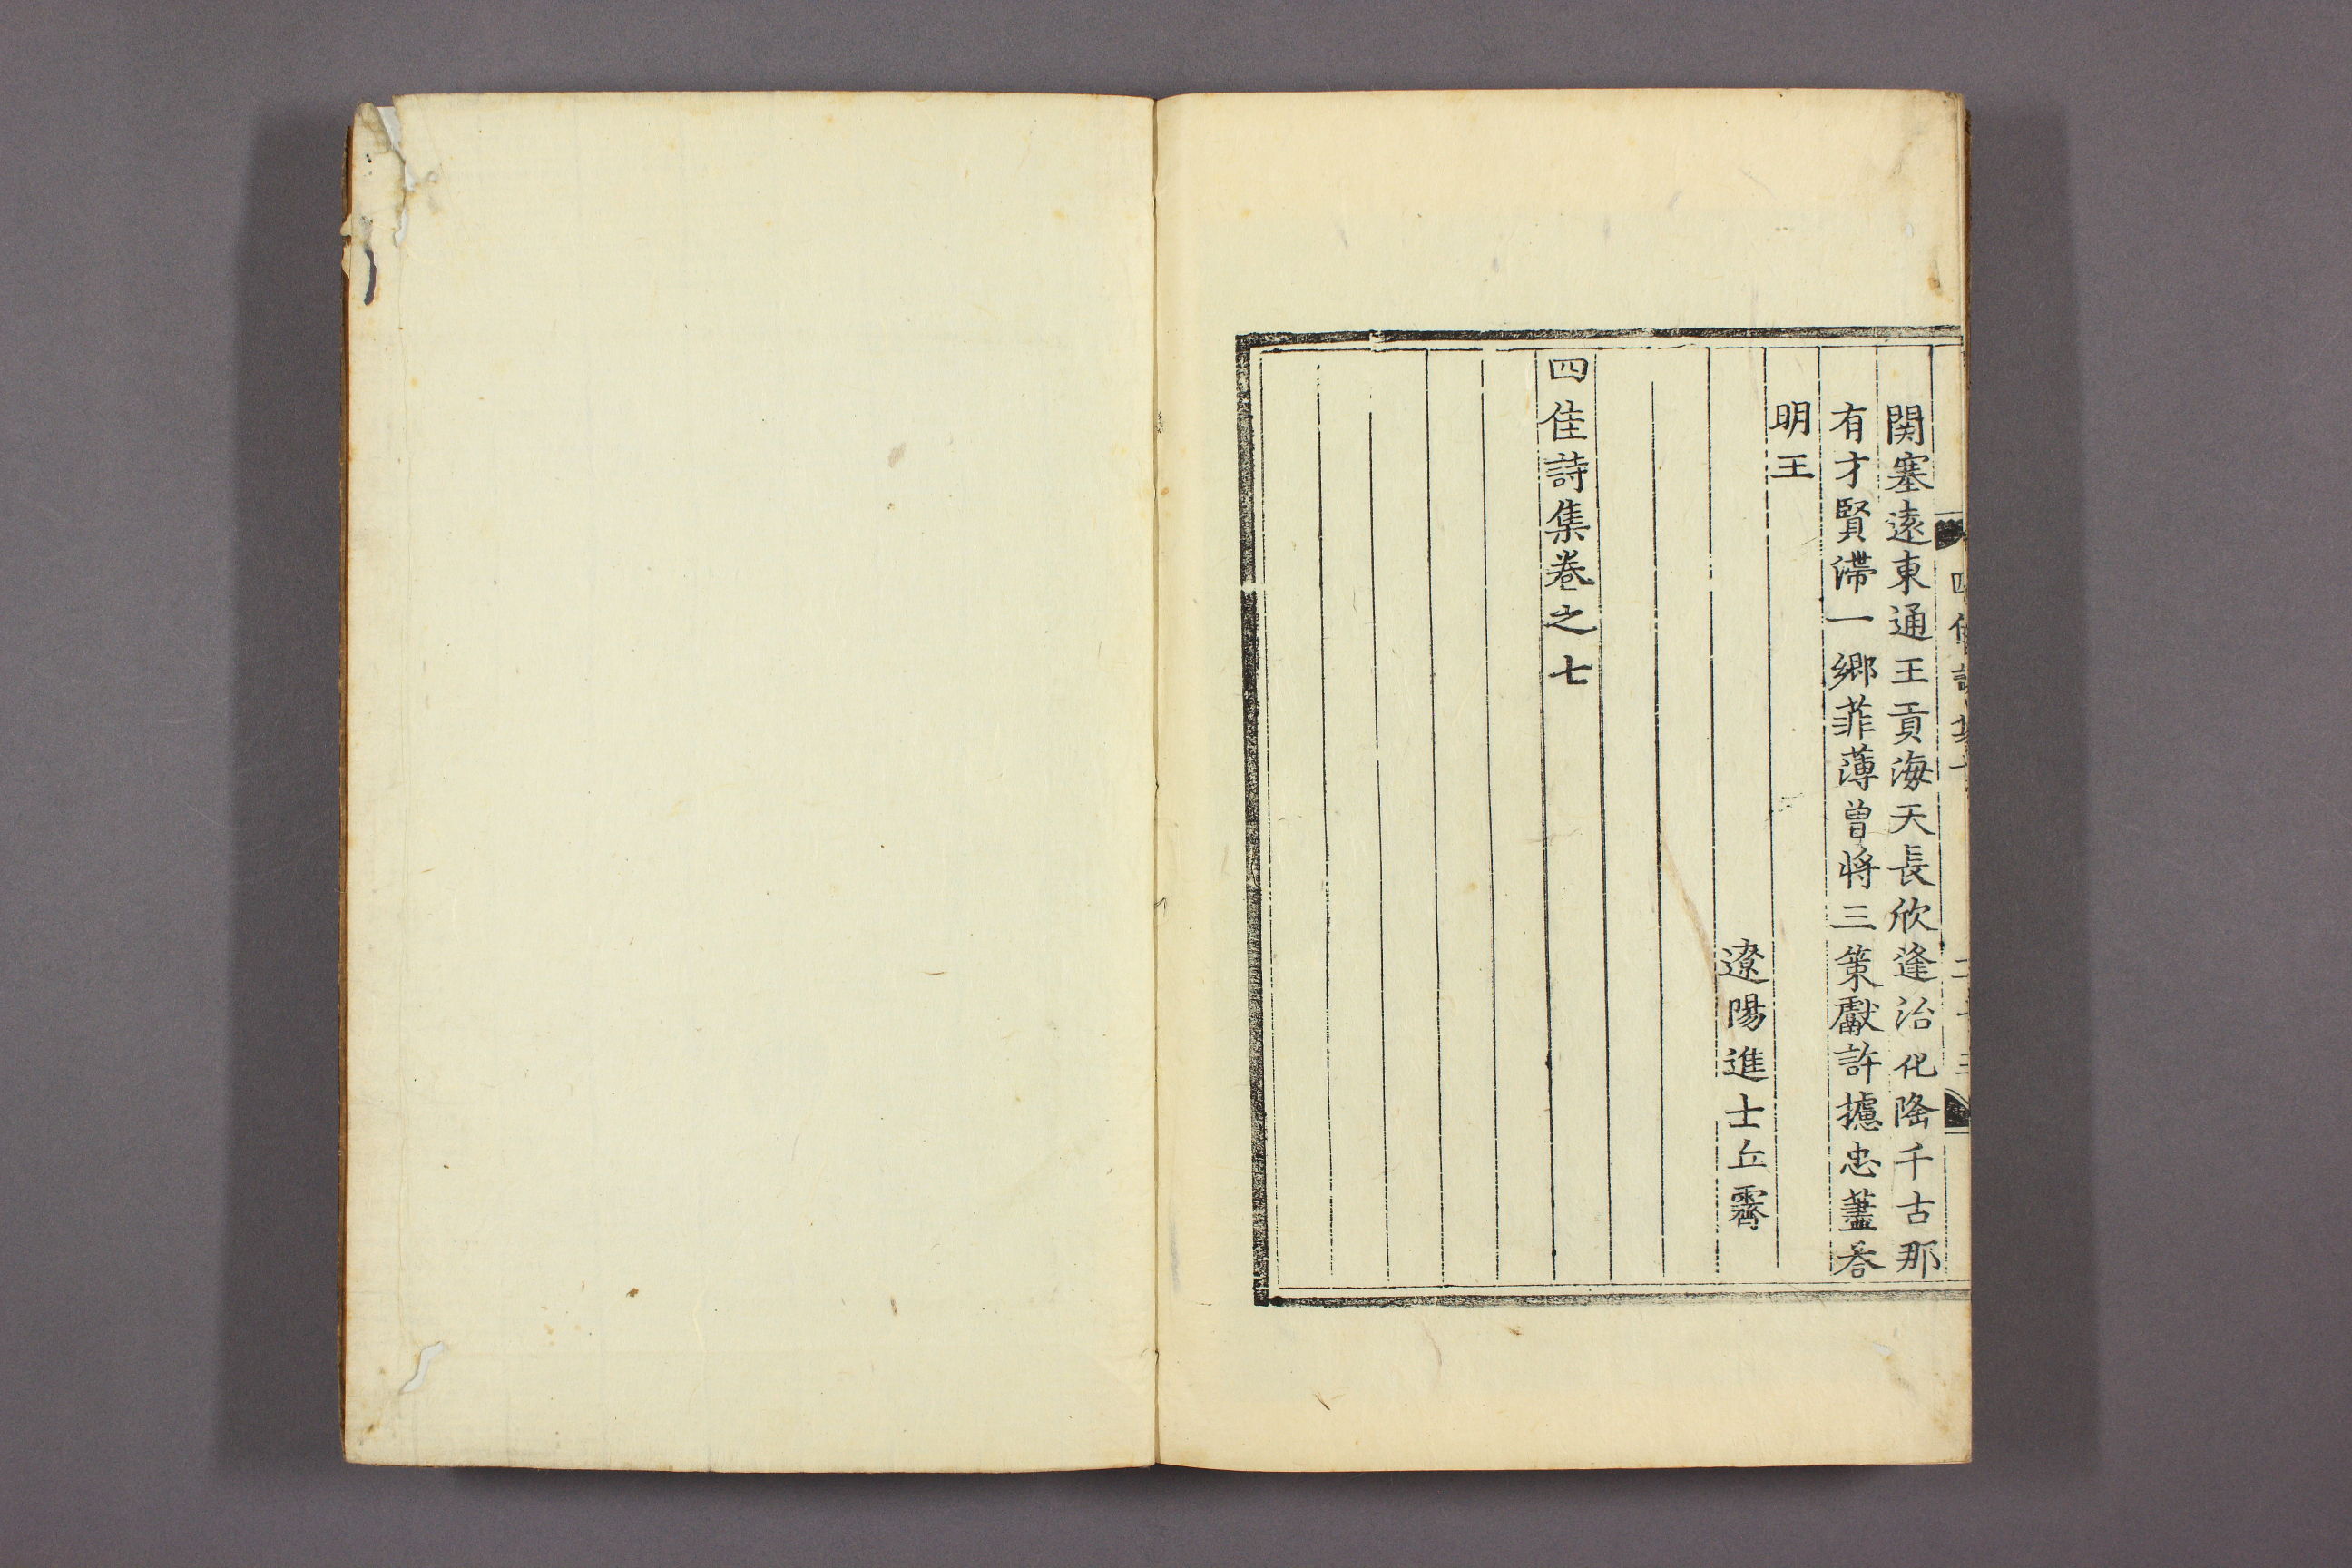 関塞遠東通王貢海天長欣逢治化隆千古那
有才賢滯一鄉菲薄曾将三策獻許攄忠藎荅
明王
遼陽進士丘霽
四佳詩集卷之七